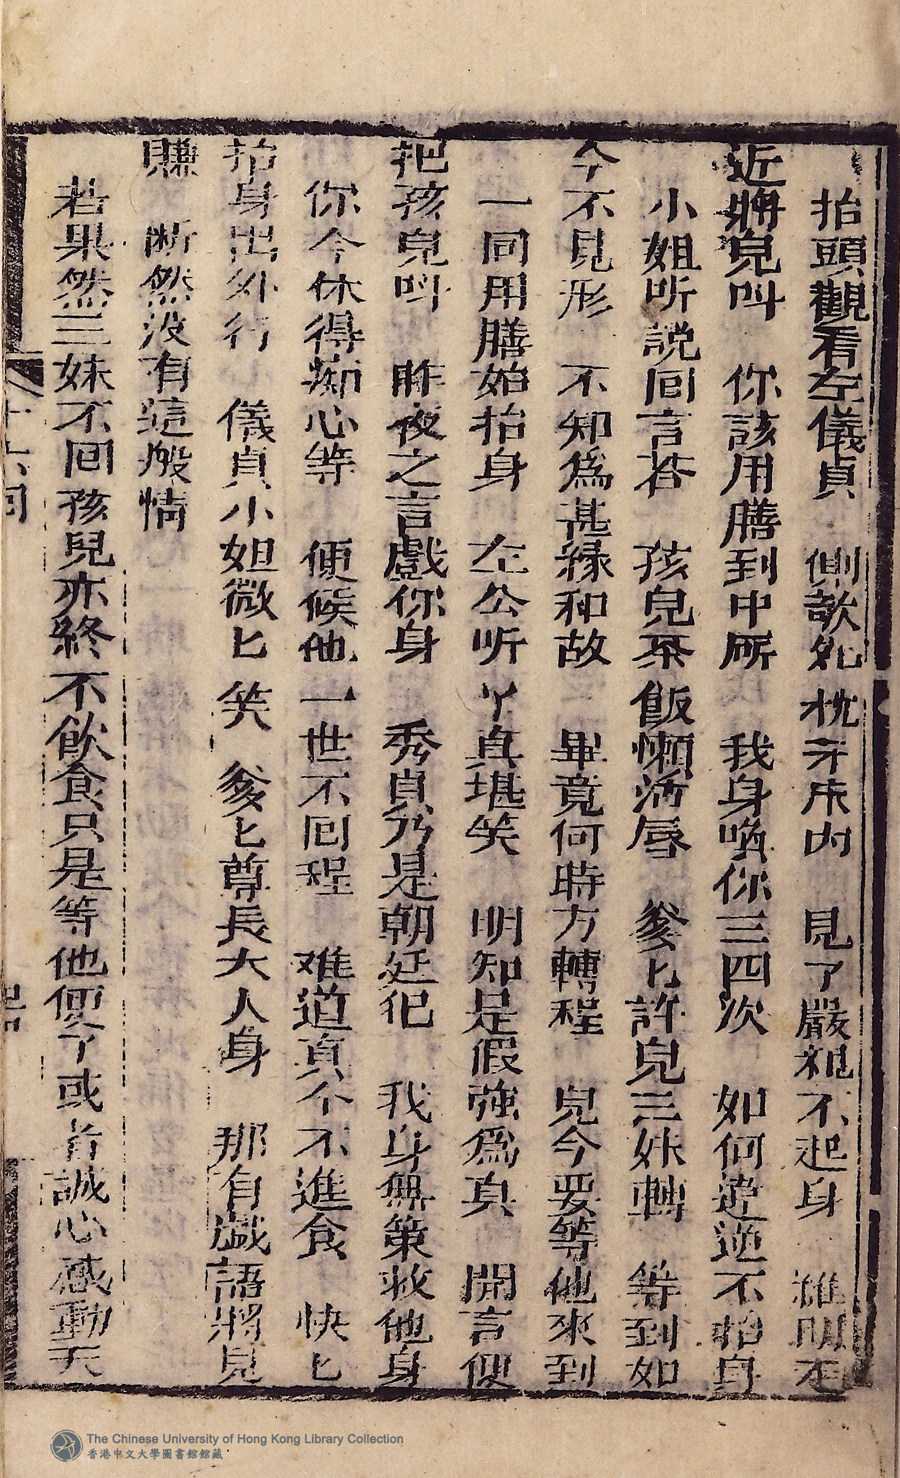 抬頭觀看左儀貞 側欹 枕牙床內 見了嚴親不起身 維明不
近將兒叫 你該用膳到中所 我身喚你三四次 如何違逆不抬身
小姐听説囘言荅 孩兒茶飯懶沾唇 爹匕許兒三妹轉 等到如
今不見形 不知爲甚緣和故 畢竟何時方轉程 兒今要等他來到
一同用膳始抬身 左公听 真堪笑 明知是假強爲真 開言便
把孩兒叫 昨夜之言戲你身 秀貞乃是朝廷犯 我身無策救他身
你今休得痴心等 便候他一世不囘程 难道真个不進食 快匕
抬身出外行 儀貞小姐微匕笑 爹匕尊長大人身 那有戯語將兒
賺 断然没有這般情
若果然三妹不囘孩兒亦終不飲食只是等他便了或者誠心感動天
十六囘
The Chinese University of Hong Kong Library Collection
香港中文大學圖書館館藏